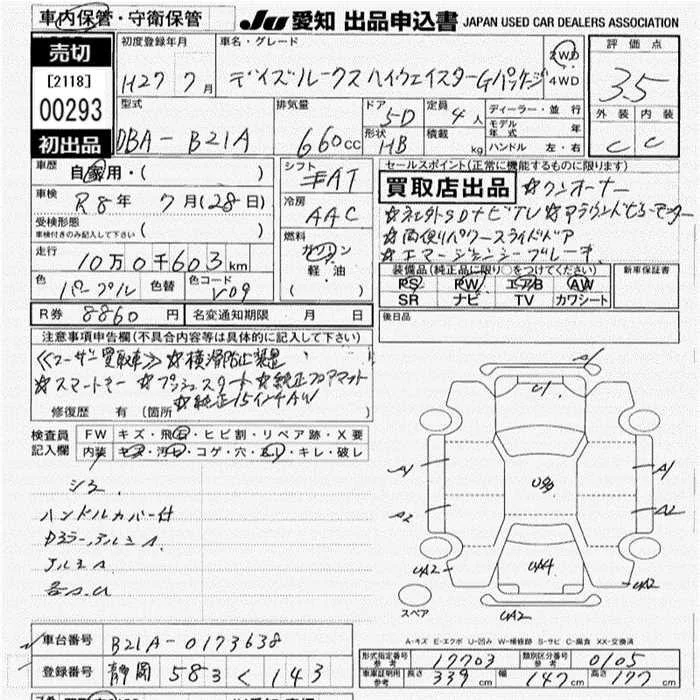 車内保管・守衛保管
JU 愛知 出品申込書 JAPAN USED CAR DEALERS ASSOCIATION
売切
[2118]
00293
初出品
初度登録年月
H27 7月
車名・グレード
デイズルークス ハイウェイスターGパッケージ
2WD
4WD
評価点
3.5
外装 内装
C C
型式
DBA-B21A
排気量
660cc
ドア 5D
形状 HB
定員 4人
積載 kg
ディーラー・並行
モデル年式 年
ハンドル 左・右
車歴
自家用・( )
車検
R8年 7月(28日)
受検形態
車検付きのみ記入して下さい ( )
走行
10万0千603km
色 パープル 色替 色コード V09
シフト
AT
冷房
AAC
燃料
ガソリン
軽油
( )
セールスポイント(正常に機能するものに限ります)
買取店出品 ☆ワンオーナー
☆社外SDナビTV ☆アラウンドビューモニター
☆両側パワースライドドア
☆エマージェンシーブレーキ
装備品(純正品に限り○をつけてください)
PS PW エアB AW
SR ナビ TV カワシート
新車保証書
後日品
R券 8860円 名変通知期限 月 日
注意事項申告欄(不具合内容等は具体的に記入して下さい)
≪ユーザー買取車≫ ☆横滑防止装置
☆スマートキー ☆プッシュスタート ☆純正フロアマット
☆純正15インチAW
修復歴 有(箇所 )
検査員記入欄
FW キズ・飛石・ヒビ割・リペア跡・X要
内装 キズ・汚れ・コゲ・穴・ヘコリ・キレ・破レ
シミ
ハンドルカバー付
ドアミラー
アルミA
各
A1
U1
A1
A1
U3
A2
A2
UA2
UA4
UA2
UA2
スペア
A-キズ E-エクボ U-凹み W-補修跡 S-サビ C-腐食 XX-交換済
車台番号 B21A-0173638
登録番号 静岡 583 く 143
形式指定番号 参考 17703 類別区分番号 参考 0105
車庫証明用 参考 長さ 339cm 幅 147cm 高さ 177cm